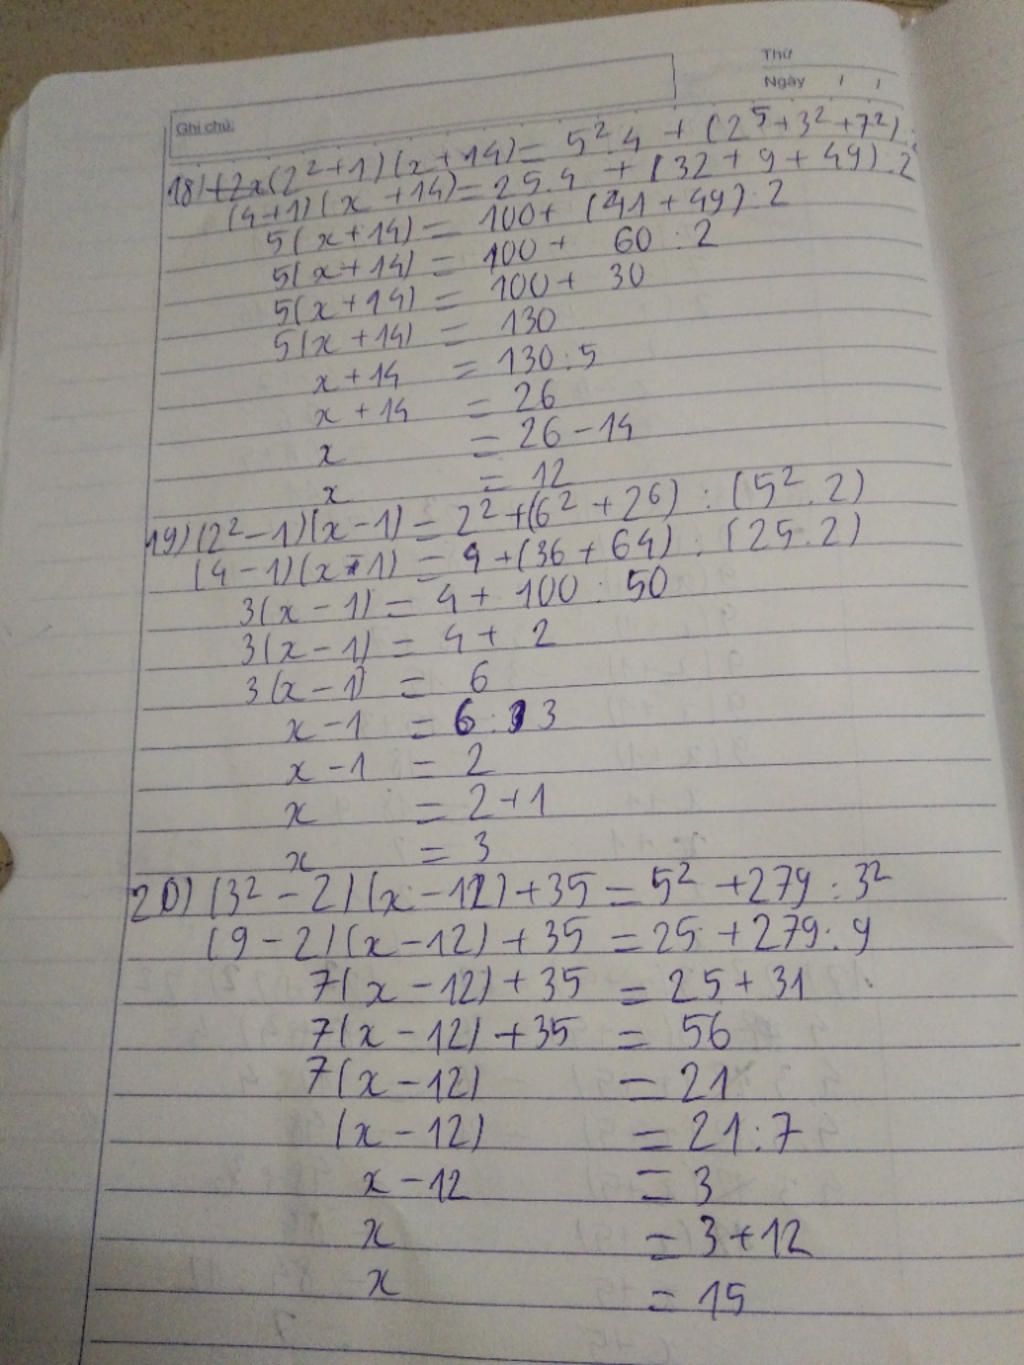 Thứ
Ngày / /
Ghi chú:
18) (2²+1)(x+14) = 5².4 + (2⁵+3²+7²):
(4+1)(x+14) = 25.4 + (32+9+49):2
5(x+14) = 100+ (41+49):2
5(x+14) = 100+ 60:2
5(x+14) = 100+ 30
5(x+14) = 130
x+14 = 130:5
x+14 = 26
x = 26-14
x = 12
19) (2²-1)(x-1) = 2²+(6²+2⁶):(5².2)
(4-1)(x-1) = 4+(36+64):(25.2)
3(x-1) = 4+ 100:50
3(x-1) = 4+ 2
3(x-1) = 6
x-1 = 6:3
x-1 = 2
x = 2+1
x = 3
20) (3²-2)(x-12)+35 = 5²+279:3²
(9-2)(x-12)+35 = 25+279:9
7(x-12)+35 = 25+31
7(x-12)+35 = 56
7(x-12) = 21
(x-12) = 21:7
x-12 = 3
x = 3+12
x = 15